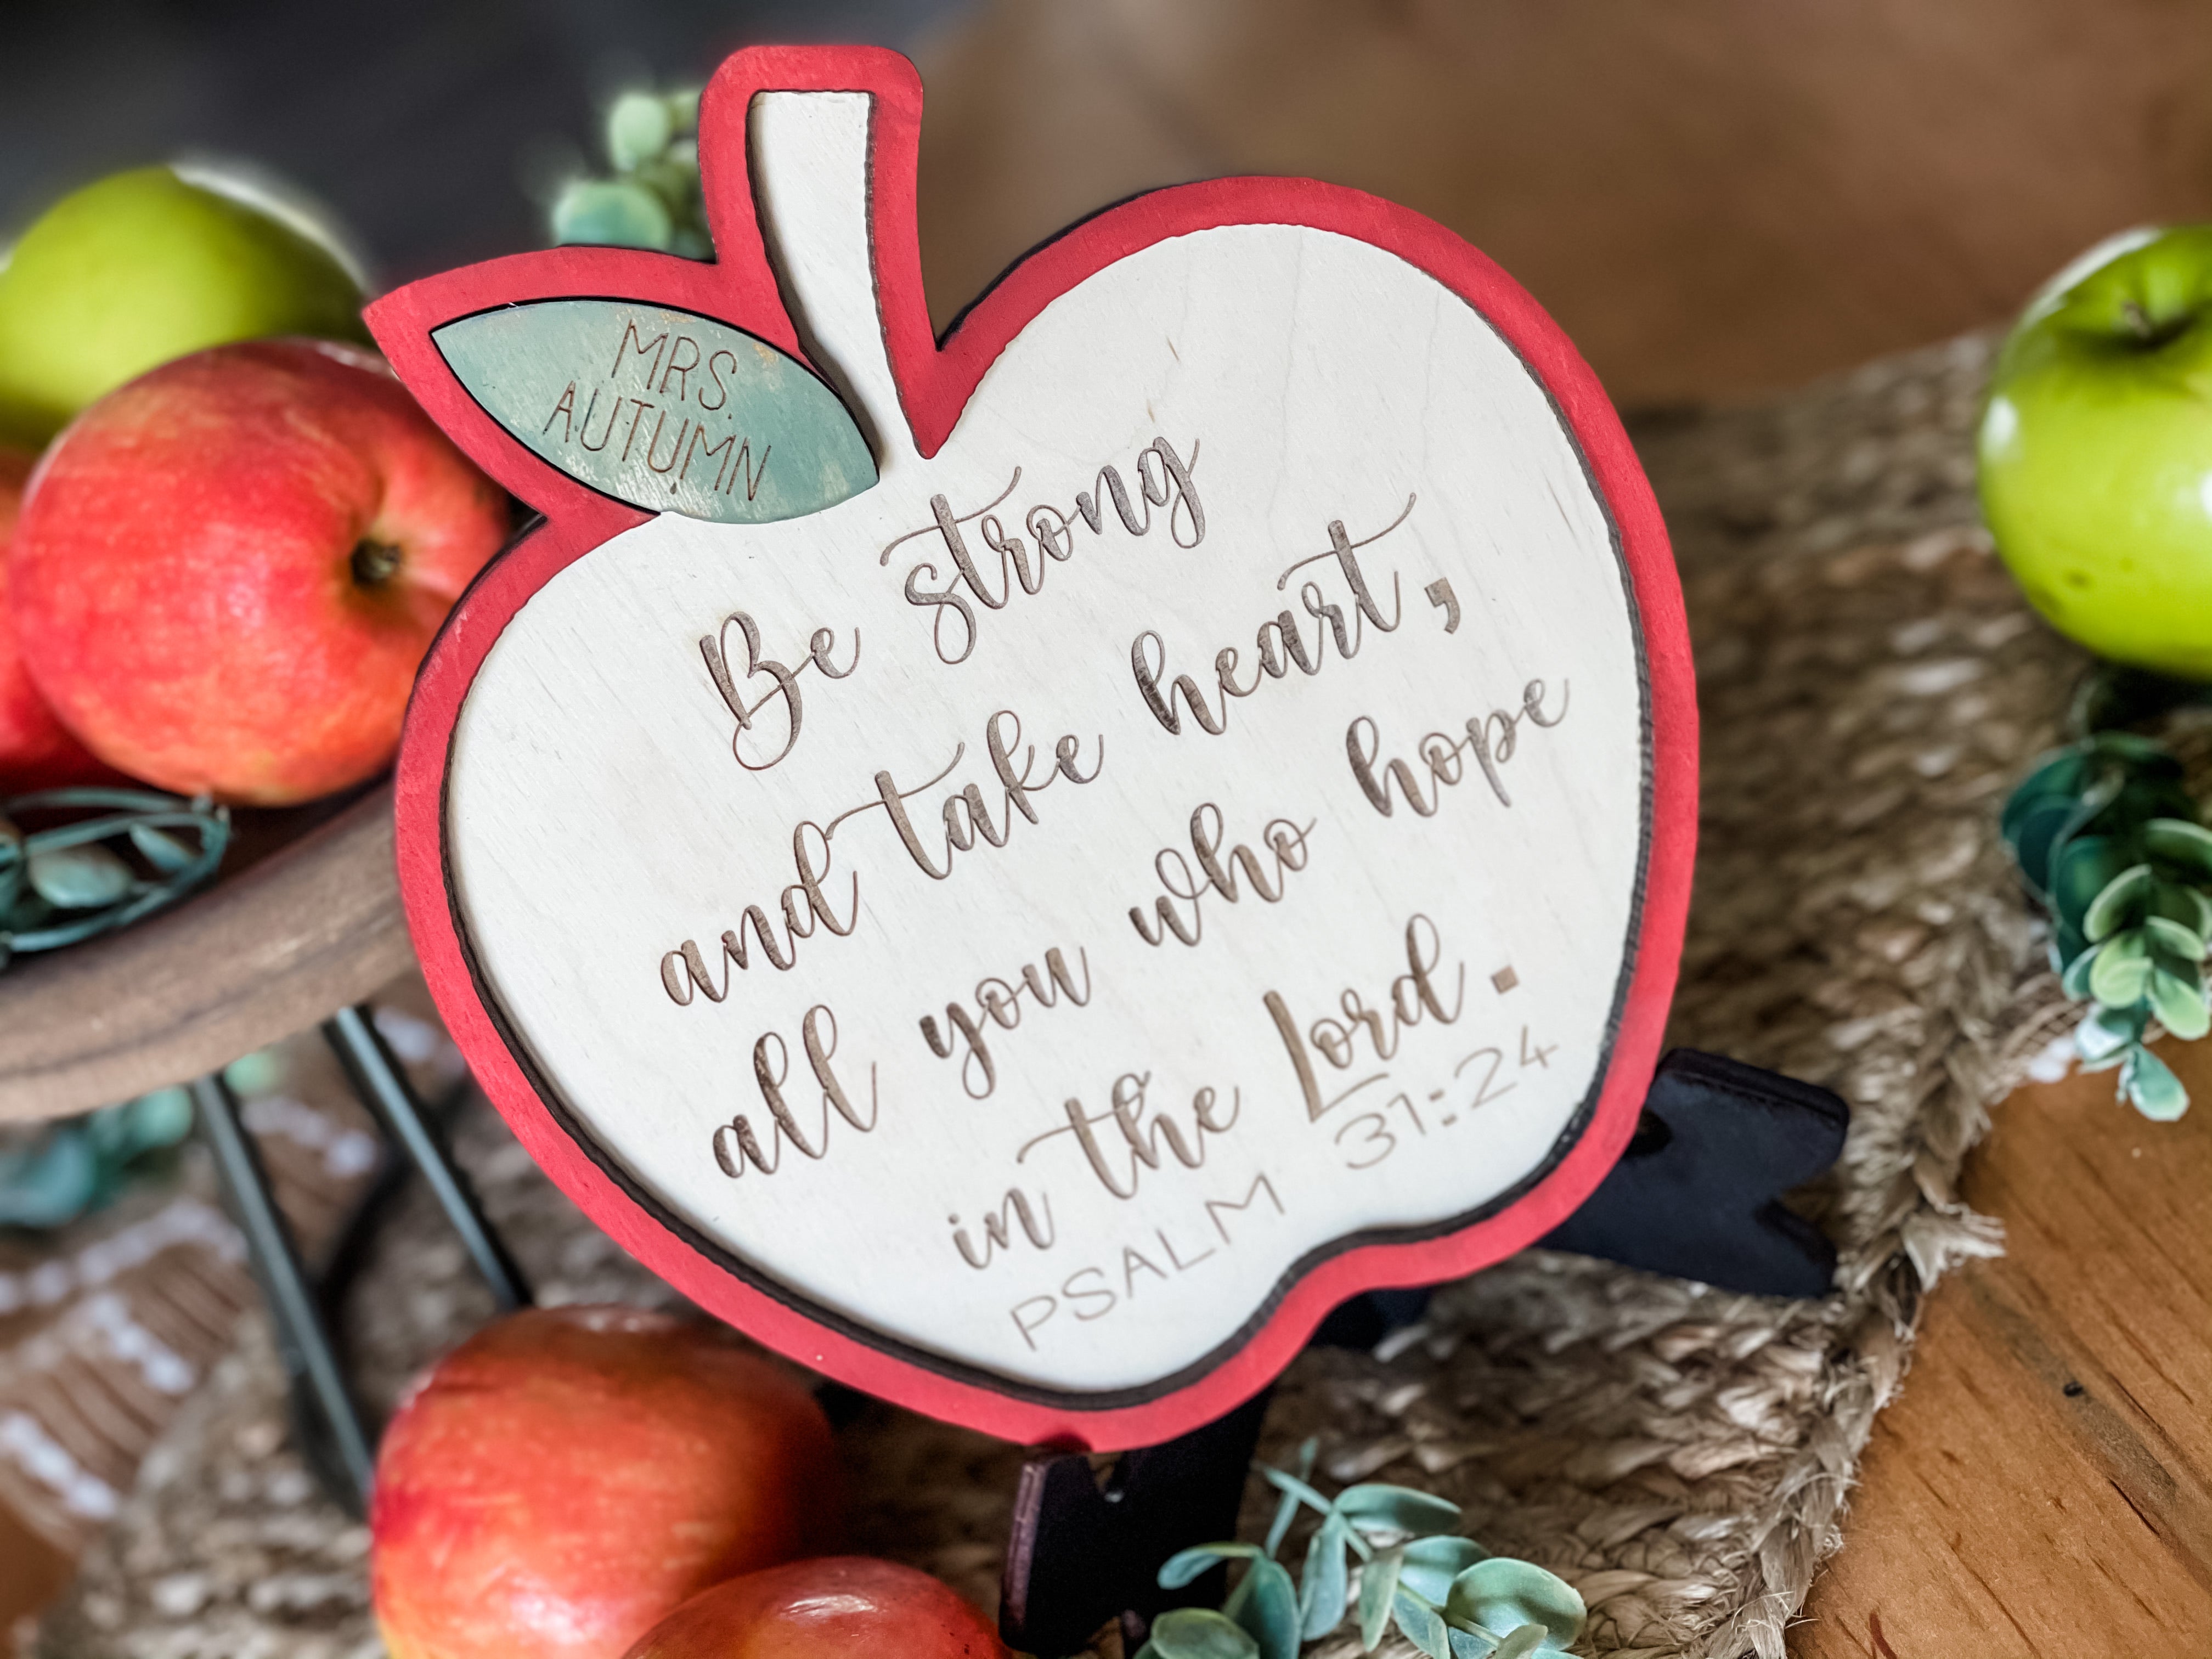 MRS.
AUTUMN
Be strong
and take heart,
all you who hope
in the Lord.
PSALM 31:24